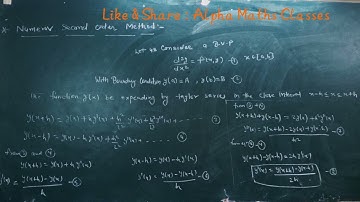 Like & Share : Alpha Maths Classes
* Numerov Second order Method :-
Let us Consider a B.V.P
d²y/dx² = f(x,y) —① x∈[a,b]
With Boundary Condition y(a) = A , y(b) = B —②
The function y(x) be expending by taylor series in the close interval x-h ≤ x ≤ x+h
y(x+h) = y(x) + h y'(x) + h²/2! y''(x) +
y(x-h) = y(x) - h y'(x) +
from ③ and ④
y(x+h) = y(x) + h y'(x)
y'(x) = y(x+h) - y(x) / h
y(x-h) = y(x) - h y'(x)
y'(x) = y(x) - y(x-h) / h
from ③ + ④
y(x+h) + y(x-h) = 2y(x) + h² y''(x)
y''(x) = y(x+h) - 2y(x) + y(x-h) / h²
y(x+h) - y(x-h) = 2h y'(x)
y'(x) = y(x+h) - y(x-h) / 2h